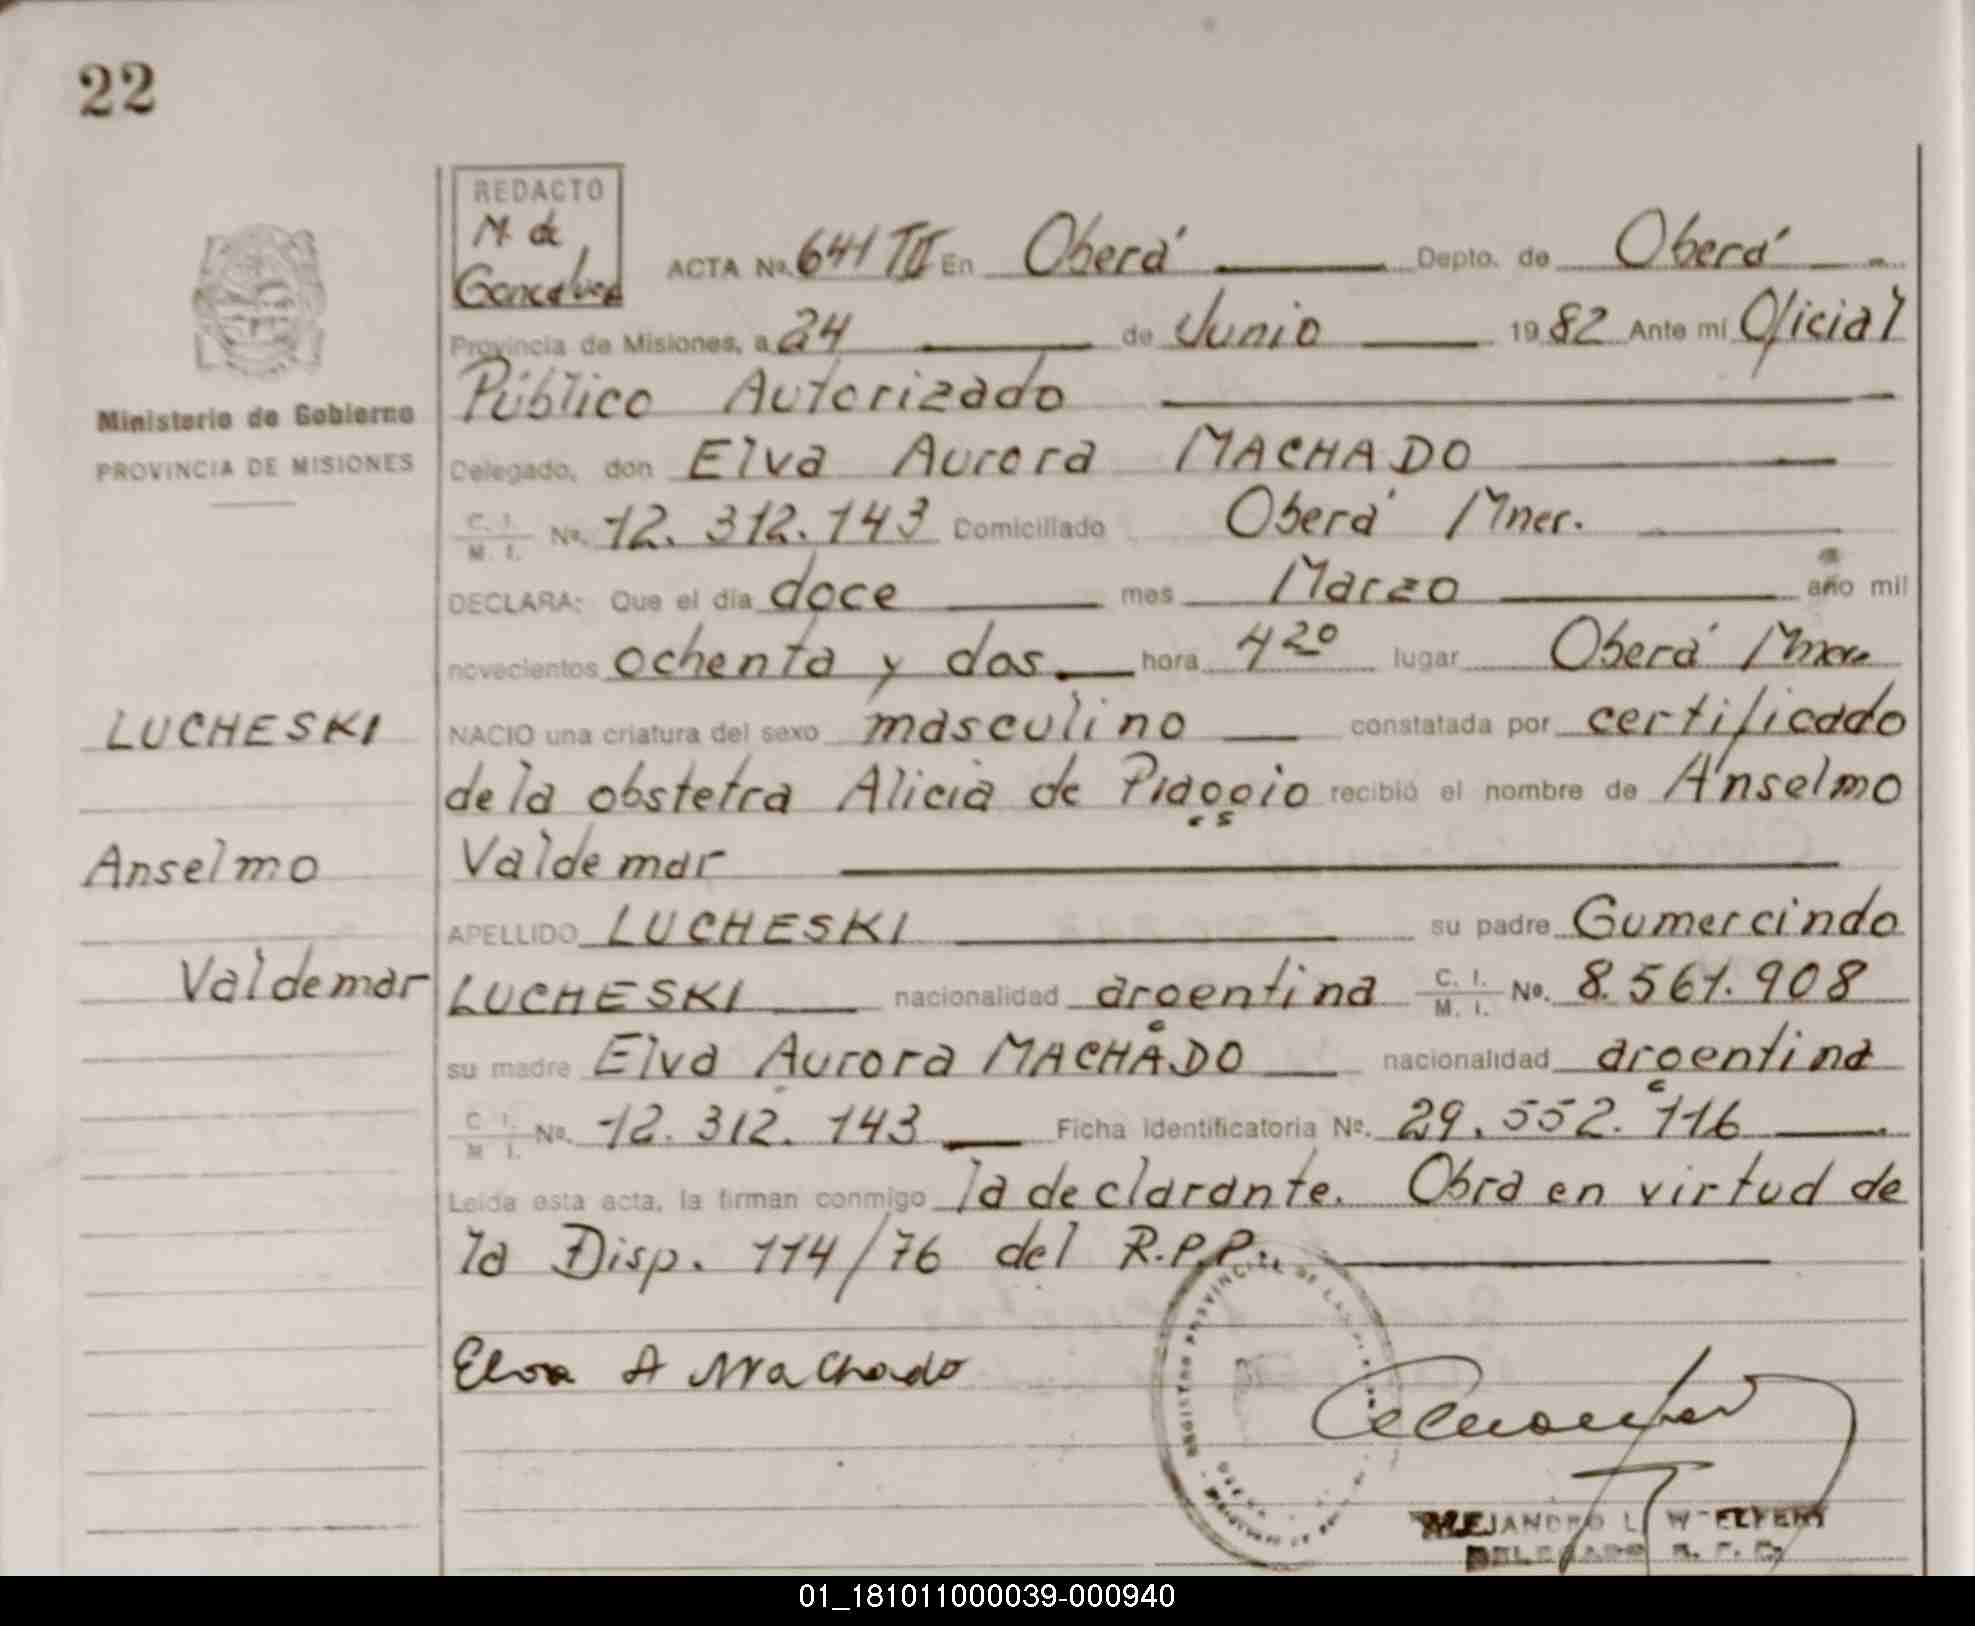 22
REDACTO
M. de
Goncalves
ACTA Nº. 641 TII En Oberá Depto. de Oberá
Provincia de Misiones, a 24 de Junio 1982 Ante mí Oficial
Ministerio de Gobierno
PROVINCIA DE MISIONES
Público Autorizado
Delegado, don Elva Aurora MACHADO
C. I. M. I. Nº. 12.312.143 Domiciliado Oberá Mnes.
DECLARA: Que el día doce mes Marzo año mil
novecientos ochenta y dos hora 4 20 lugar Oberá Mnes
LUCHESKI
NACIO una criatura del sexo masculino constatada por certificado
de la obstetra Alicia de Piaggio recibió el nombre de Anselmo
Anselmo
Valdemar
Valdemar
APELLIDO LUCHESKI su padre Gumercindo
LUCHESKI nacionalidad argentina C. I. M. I. Nº. 8.561.908
su madre Elva Aurora MACHADO nacionalidad argentina
C. I. M. I. Nº. 12.312.143 Ficha identificatoria Nº. 29.552.116
Leída esta acta, la firman conmigo la declarante. Obra en virtud de
la Disp. 114/76 del R.P.P.
Elva A Machado
ALEJANDRO L.
DELEGADO R. P.
01_181011000039-000940